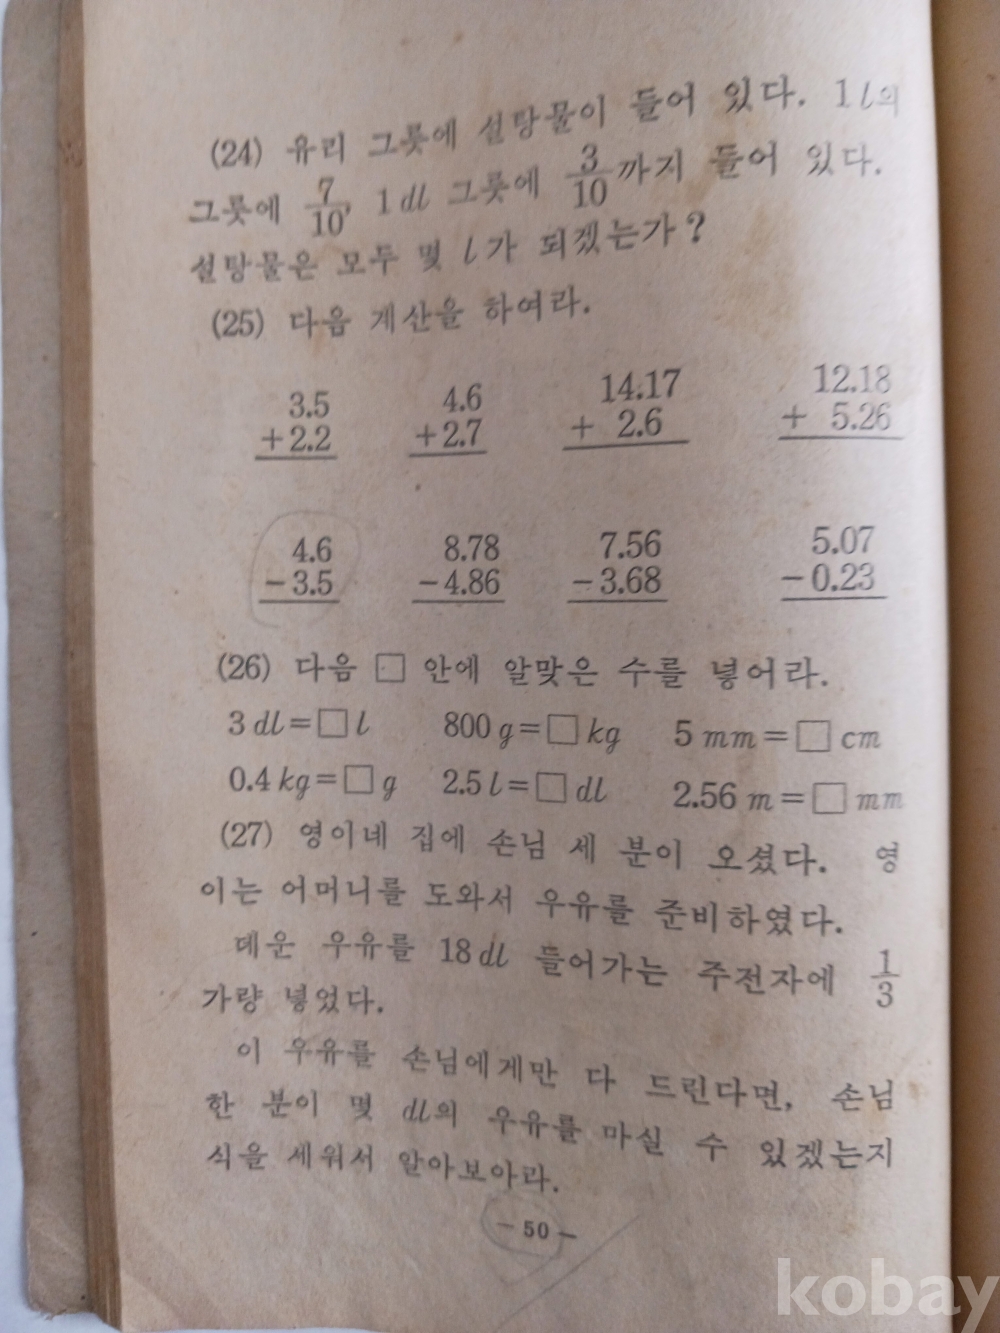 (24) 유리 그릇에 설탕물이 들어 있다. 1 l의
그릇에 7/10, 1 dl 그릇에 3/10까지 들어 있다.
설탕물은 모두 몇 l가 되겠는가?
(25) 다음 계산을 하여라.
3.5 4.6 14.17 12.18
+2.2 +2.7 + 2.6 + 5.26
4.6 8.78 7.56 5.07
-3.5 -4.86 -3.68 -0.23
(26) 다음 □ 안에 알맞은 수를 넣어라.
3 dl=□ l 800 g=□ kg 5 mm=□ cm
0.4 kg=□ g 2.5 l=□ dl 2.56 m=□ mm
(27) 영이네 집에 손님 세 분이 오셨다. 영
이는 어머니를 도와서 우유를 준비하였다.
데운 우유를 18 dl 들어가는 주전자에 1/3
가량 넣었다.
이 우유를 손님에게만 다 드린다면, 손님
한 분이 몇 dl의 우유를 마실 수 있겠는지
식을 세워서 알아보아라.
- 50 -
kobay